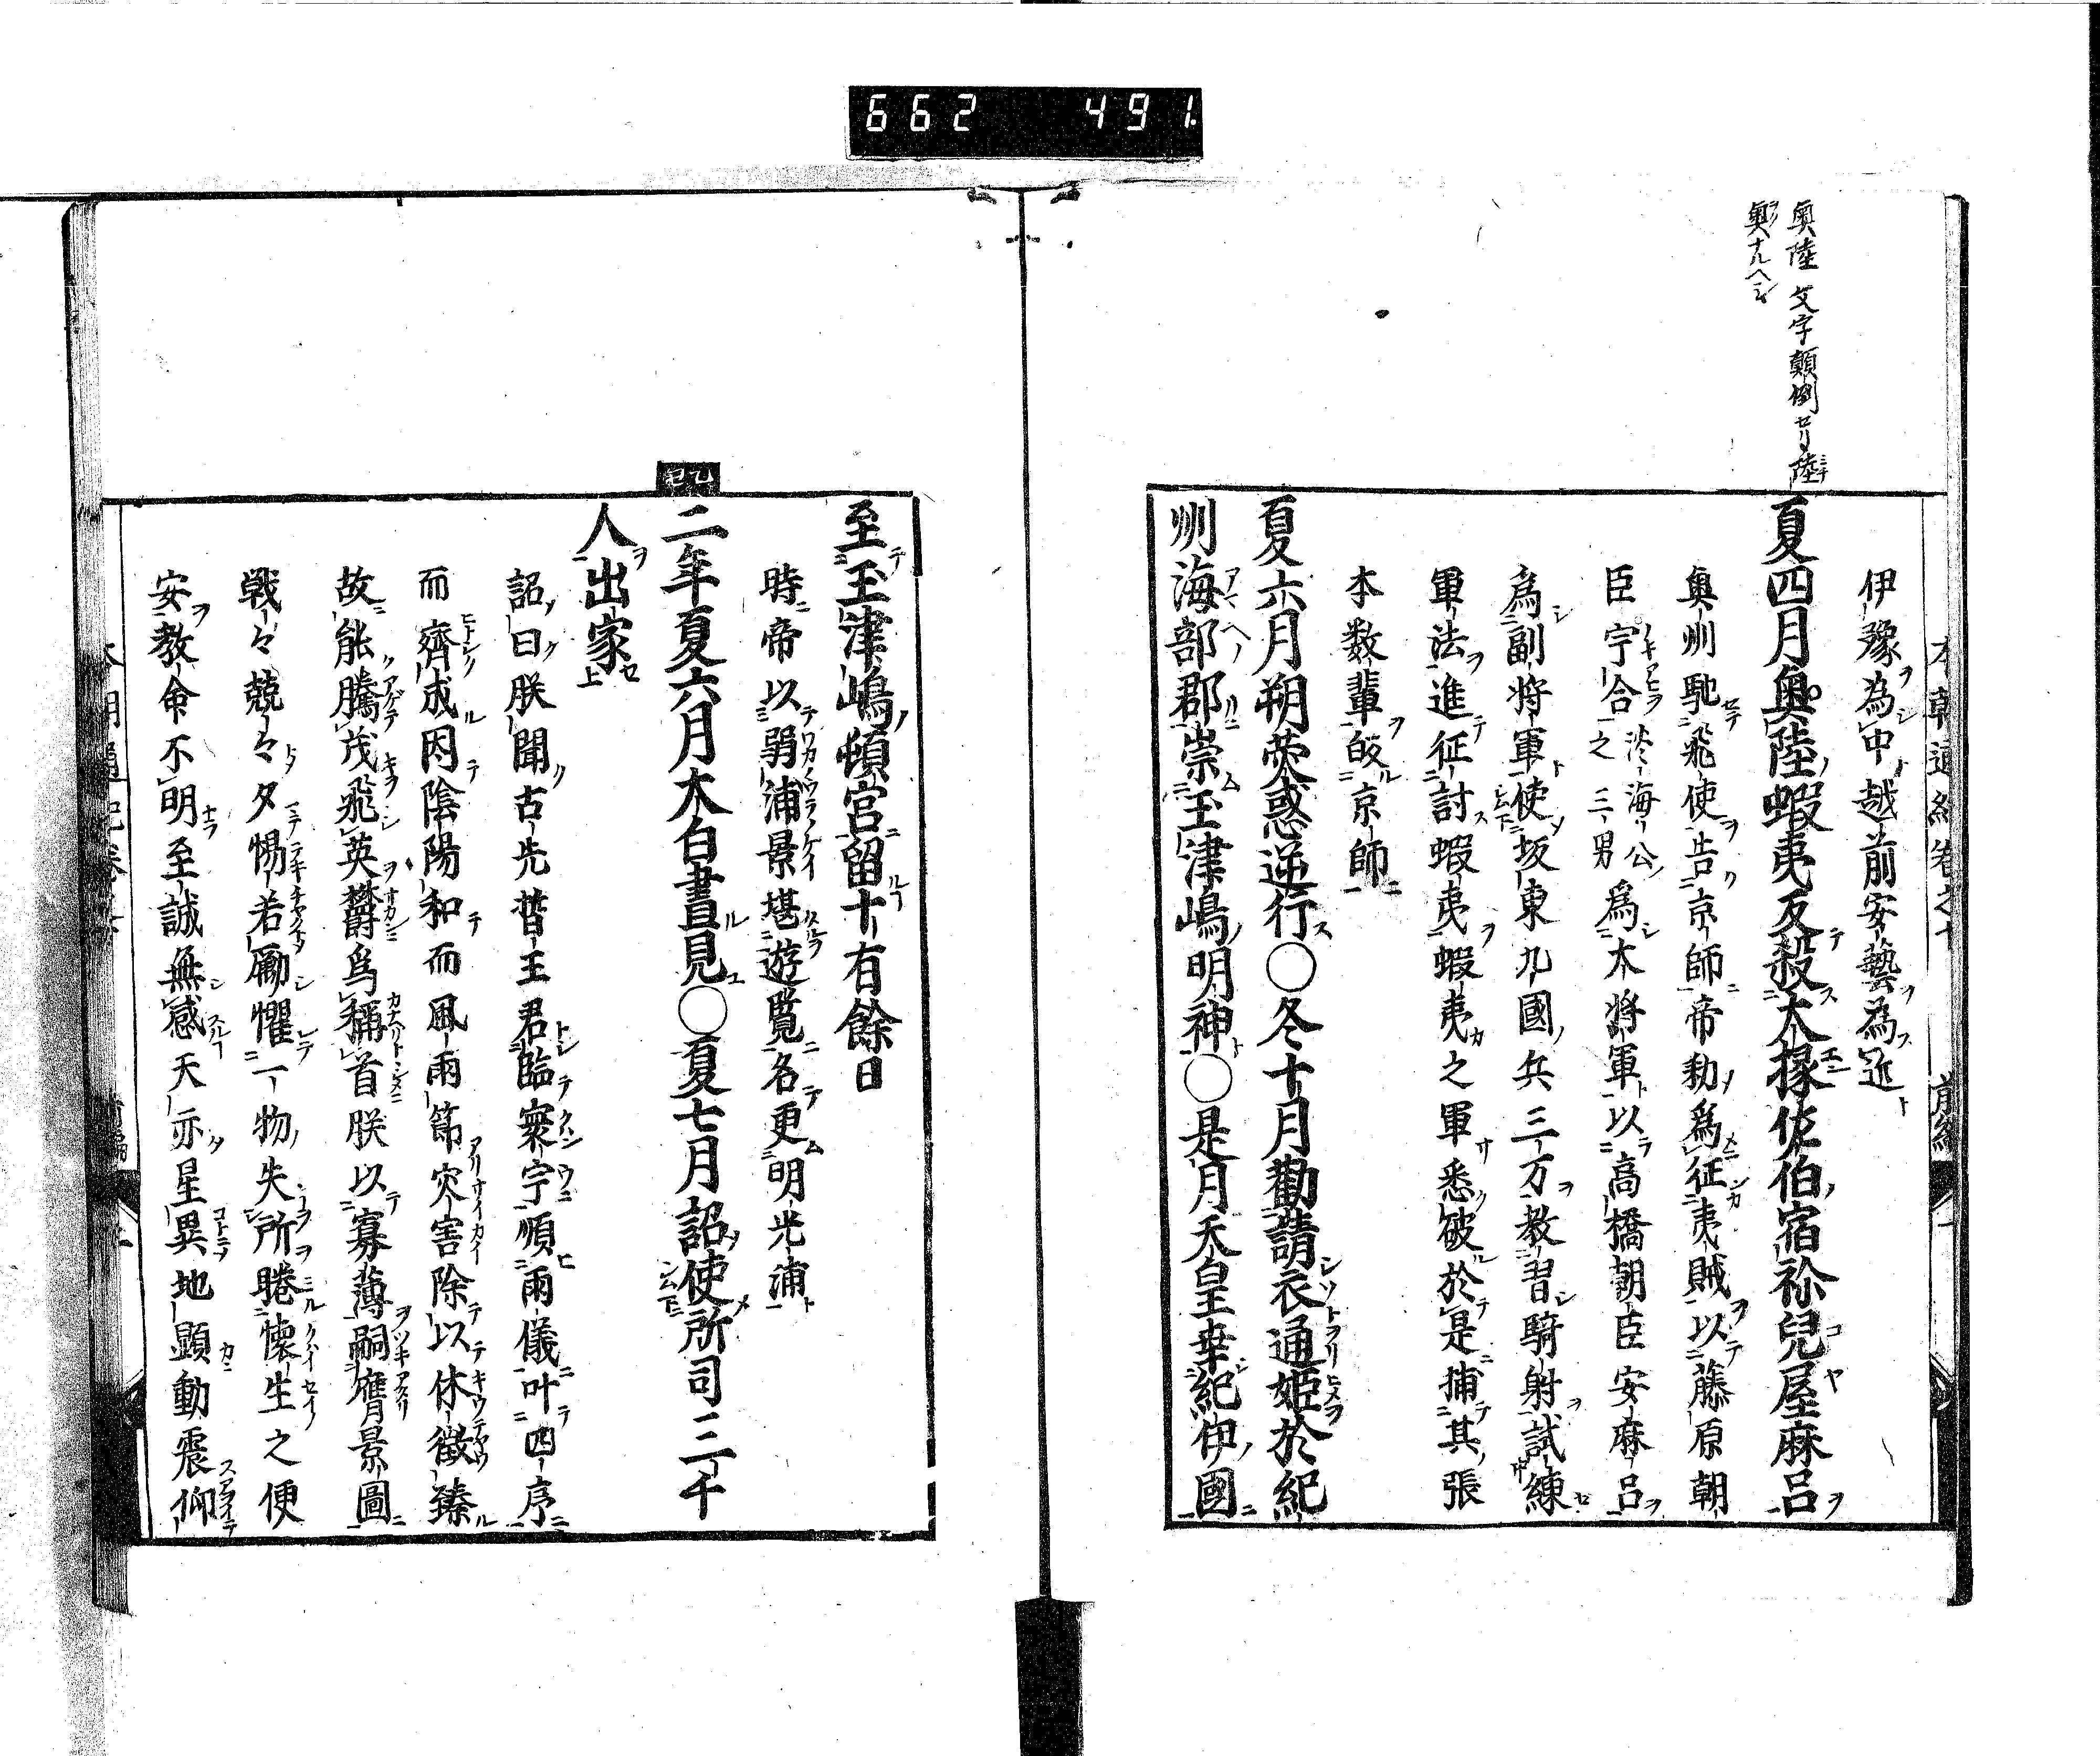 662 491
奥陸文字顛倒セリ陸
奥ナルヘシ
本朝通紀卷之十 前編
伊豫為中越前安藝為近
夏四月奥陸蝦夷反殺大掾佐伯宿祢兒屋麻呂
奥州馳飛使告京師帝勅爲征夷賊以藤原朝
臣宇合淡海公之三男爲大將軍以高橋朝臣安麻呂
爲副将軍使坂東九國兵三万教習騎射試練
軍法進征討蝦夷蝦夷之軍悉破於是捕其張
本数輩皈京師
夏六月朔熒惑逆行〇冬十月勸請衣通姫於紀
州海部郡崇玉津嶋明神〇是月天皇幸紀伊國
至玉津嶋頓宮留十有餘日
時帝以弱浦景堪遊覧名更明光浦
乙巳
二年夏六月太白晝見〇夏七月詔使所司三千
人出家
詔曰朕聞古先哲王君臨寰宇順兩儀叶四序
而齊成因陰陽和而風雨節災害除以休徴臻
故能騰茂飛英欝爲稱首朕以寡薄嗣膺景圖
戰々兢々夕惕若厲懼一物失所睠懐生之便
安教命不明至誠無感天亦星異地顕動震仰